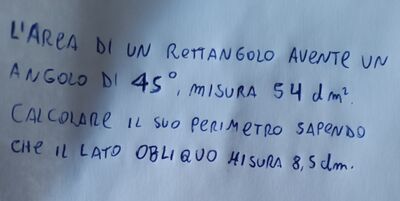 L'AREA DI UN RETTANGOLO AVENTE UN
ANGOLO DI 45°, MISURA 54 dm².
CALCOLARE IL SUO PERIMETRO SAPENDO
CHE IL LATO OBLIQUO MISURA 8,5dm.